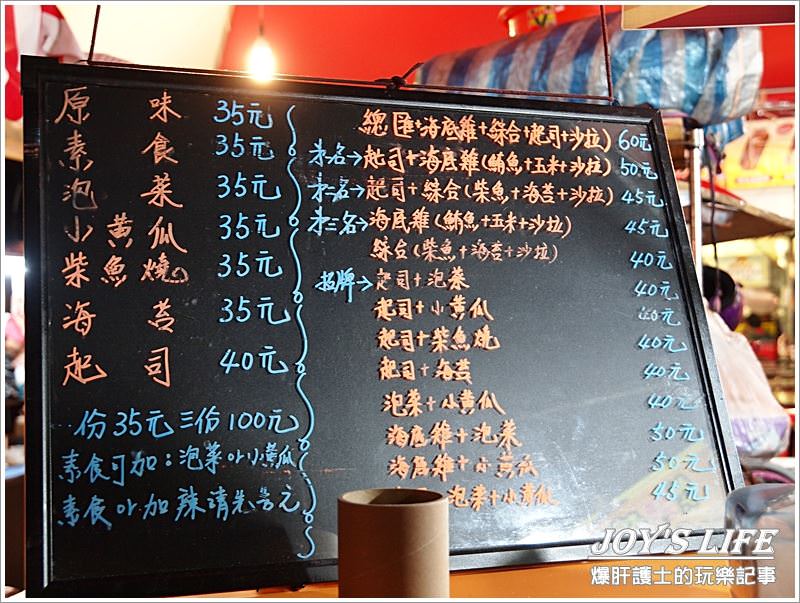 原味 35元
素食 35元
泡菜 35元
小黃瓜 35元
柴魚燒 35元
海苔 35元
起司 40元
一份35元三份100元
素食可加：泡菜or小黃瓜
素食or加辣請先告元
總匯+海底雞+綜合+起司+沙拉) 60元
才一名→起司+海底雞(鮪魚+玉米+沙拉) 50元
才二名→起司+綜合(柴魚+海苔+沙拉) 45元
才三名→海底雞(鮪魚+玉米+沙拉) 45元
綜合(柴魚+海苔+沙拉) 40元
招牌→起司+泡菜 40元
起司+小黃瓜 40元
起司+柴魚燒 40元
起司+海苔 40元
泡菜+小黃瓜 40元
海底雞+泡菜 50元
海底雞+小黃瓜 50元
泡菜+小黃瓜 45元
JOY'S LIFE
爆肝護士的玩樂記事